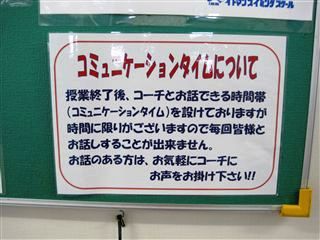 イトマンスイミングスクール
コミュニケーションタイムについて
授業終了後、コーチとお話できる時間帯
(コミュニケーションタイム)を設けておりますが
時間に限りがございますので毎回皆様と
お話しすることが出来ません。
お話のある方は、お気軽にコーチに
お声をお掛け下さい!!